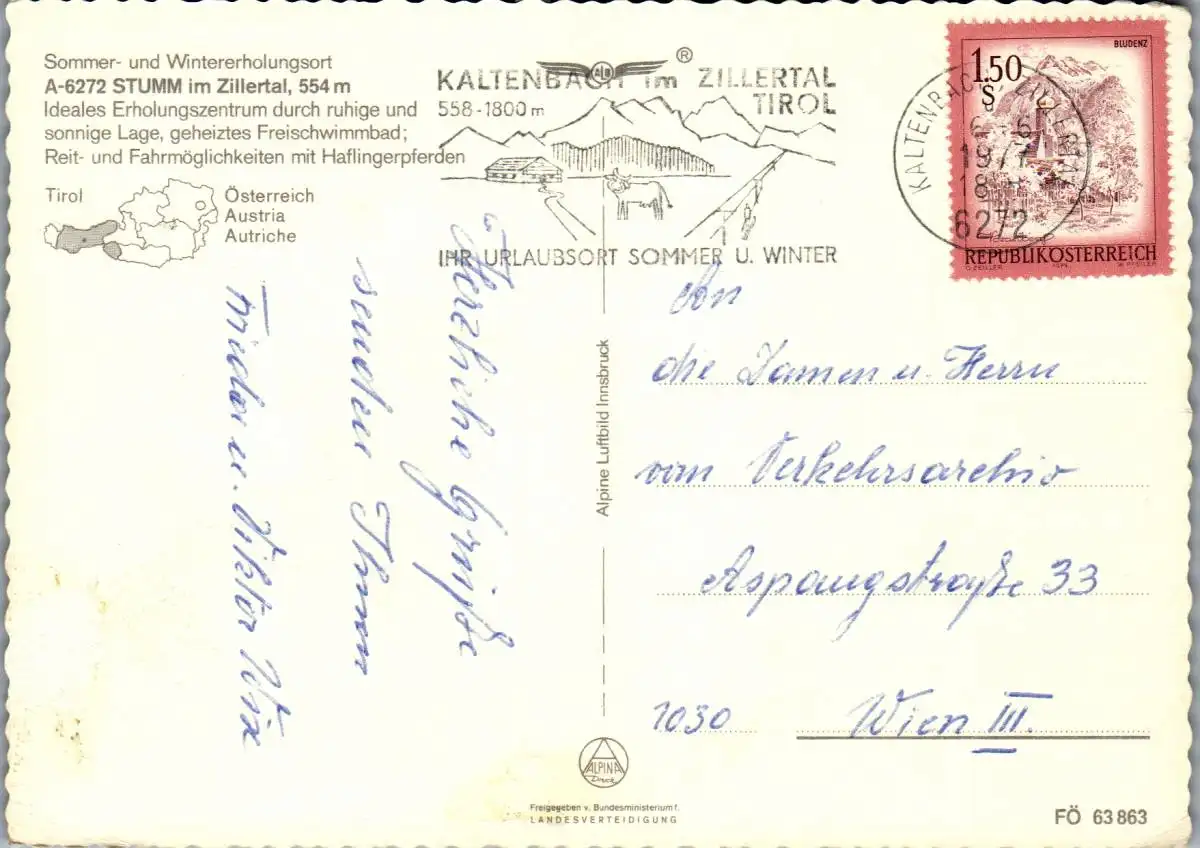 Sommer- und Wintererholungsort
A-6272 STUMM im Zillertal, 554 m
Ideales Erholungszentrum durch ruhige und
sonnige Lage, geheiztes Freischwimmbad;
Reit- und Fahrmöglichkeiten mit Haflingerpferden
Tirol
Österreich
Austria
Autriche
KALTENBACH im ® ZILLERTAL
TIROL
558-1800 m
IHR URLAUBSORT SOMMER U. WINTER
BLUDENZ
1.50
S
REPUBLIK ÖSTERREICH
KALTENBACH ZILLERTAL
1977
18
6272
Herzliche Grüße
senden Ihnen
Frieda u. Viktor Wix
Alpine Luftbild Innsbruck
An
die Damen u. Herrn
vom Verkehrsarchiv
Aspangstraße 33
1030 Wien III.
ALPINA
Druck
Freigegeben v. Bundesministerium f.
LANDESVERTEIDIGUNG
FÖ 63 863